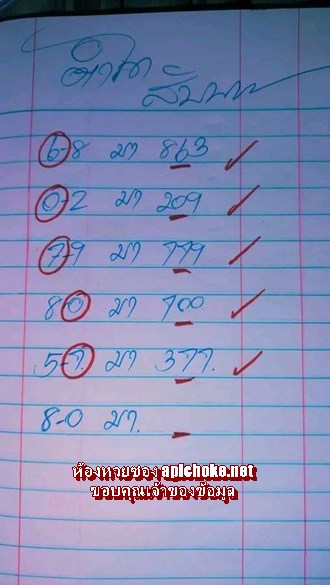 6-8 มา 863
0-2 มา 209
7-9 มา 779
8-0 มา 700
5-7. มา 377.
8-0 มา.
ห้องหวยซอง apichoke.net
ขอบคุณเจ้าของข้อมูล